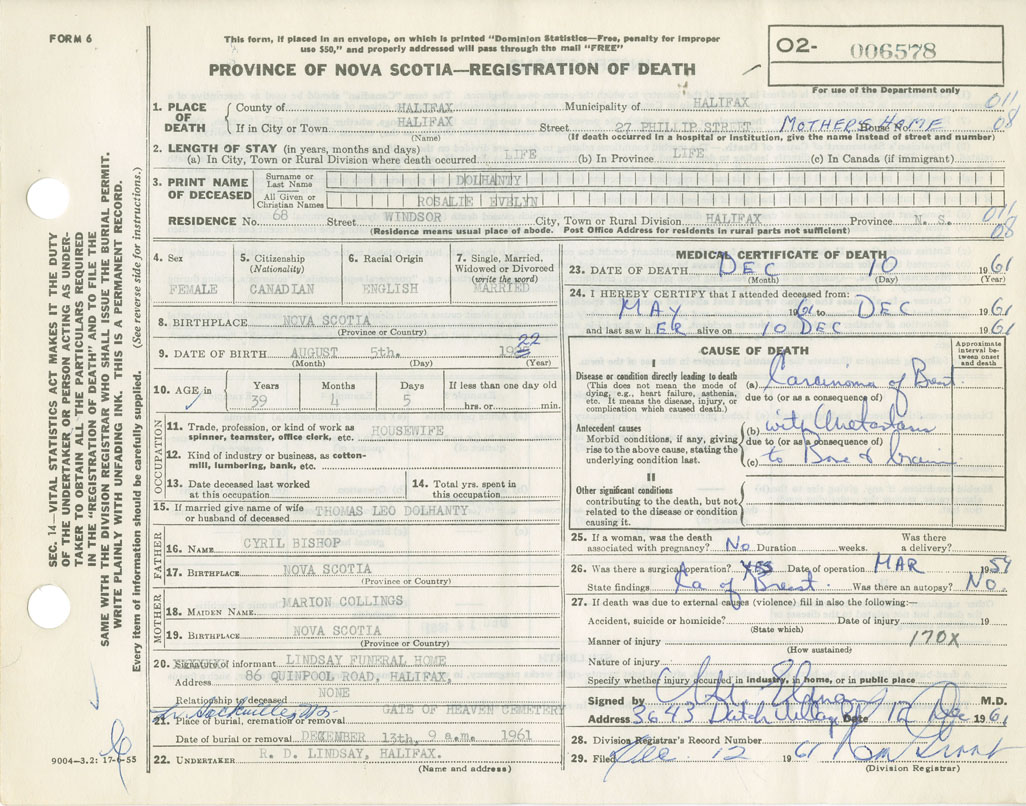 FORM 6
This form, if placed in an envelope, on which is printed "Dominion Statistics—Free, penalty for improper
use $50," and properly addressed will pass through the mail "FREE"
PROVINCE OF NOVA SCOTIA—REGISTRATION OF DEATH
O2- 006578
For use of the Department only
1. PLACE OF DEATH County of HALIFAX Municipality of HALIFAX 011
If in City or Town HALIFAX Street 27 PHILLIP STREET House No. MOTHERS HOME 08
(Name) (If death occurred in a hospital or institution, give the name instead of street and number)
2. LENGTH OF STAY (in years, months and days)
(a) In City, Town or Rural Division where death occurred LIFE (b) In Province LIFE (c) In Canada (if immigrant)
3. PRINT NAME OF DECEASED Surname or Last Name DOLHANTY
All Given or Christian Names ROSALIE EVELYN
RESIDENCE No. 68 Street WINDSOR City, Town or Rural Division HALIFAX Province N. S. 011
(Residence means usual place of abode. Post Office Address for residents in rural parts not sufficient) 08
4. Sex FEMALE
5. Citizenship (Nationality) CANADIAN
6. Racial Origin ENGLISH
7. Single, Married, Widowed or Divorced (write the word) MARRIED
8. BIRTHPLACE NOVA SCOTIA
(Province or Country)
9. DATE OF BIRTH AUGUST 5th. 19 22
(Month) (Day) (Year)
10. AGE in Years 39 Months 4 Days 5 If less than one day old hrs. or min.
OCCUPATION
11. Trade, profession, or kind of work as spinner, teamster, office clerk, etc. HOUSEWIFE
12. Kind of industry or business, as cotton-mill, lumbering, bank, etc.
13. Date deceased last worked at this occupation
14. Total yrs. spent in this occupation
15. If married give name of wife or husband of deceased THOMAS LEO DOLHANTY
FATHER
16. NAME CYRIL BISHOP
17. BIRTHPLACE NOVA SCOTIA
(Province or Country)
MOTHER
18. MAIDEN NAME MARION COLLINGS
19. BIRTHPLACE NOVA SCOTIA
(Province or Country)
20. Signature of informant LINDSAY FUNERAL HOME
Address 86 QUINPOOL ROAD, HALIFAX,
Relationship to deceased NONE
21. Place of burial, cremation or removal GATE OF HEAVEN CEMETERY
Date of burial or removal DECEMBER 13th, 9 a.m. 1961
22. UNDERTAKER R. D. LINDSAY, HALIFAX.
(Name and address)
MEDICAL CERTIFICATE OF DEATH
23. DATE OF DEATH DEC 10 1961
(Month) (Day) (Year)
24. I HEREBY CERTIFY that I attended deceased from:
MAY 1961 to DEC 1961
and last saw hER alive on 10 DEC 1961
CAUSE OF DEATH
Approximate interval between onset and death
I
Disease or condition directly leading to death
(This does not mean the mode of dying, e.g., heart failure, asthenia, etc. It means the disease, injury, or complication which caused death.)
(a) Carcinoma of Breast.
due to (or as a consequence of)
Antecedent causes
Morbid conditions, if any, giving rise to the above cause, stating the underlying condition last.
(b) with Metastasis
due to (or as a consequence of)
(c) to Bone & brain
II
Other significant conditions
contributing to the death, but not related to the disease or condition causing it.
25. If a woman, was the death associated with pregnancy? No Duration weeks. Was there a delivery?
26. Was there a surgical operation? YES Date of operation MAR 19
State findings Ca of Breast. Was there an autopsy? No
27. If death was due to external causes (violence) fill in also the following:—
Accident, suicide or homicide? Date of injury 19
(State which)
Manner of injury 170X
(How sustained)
Nature of injury
Specify whether injury occurred in industry, in home, or in public place
Signed by M.D.
Address 3643 Dutch Village Date 12 Dec 1961
28. Division Registrar's Record Number
29. Filed Dec 12 1961
(Division Registrar)
SEC. 14—VITAL STATISTICS ACT MAKES IT THE DUTY
OF THE UNDERTAKER OR PERSON ACTING AS UNDER-
TAKER TO OBTAIN ALL THE PARTICULARS REQUIRED
IN THE "REGISTRATION OF DEATH" AND TO FILE THE
SAME WITH THE DIVISION REGISTRAR WHO SHALL ISSUE THE BURIAL PERMIT.
WRITE PLAINLY WITH UNFADING INK. THIS IS A PERMANENT RECORD.
Every item of information should be carefully supplied. (See reverse side for instructions.)
9004-3.2: 17-6-55